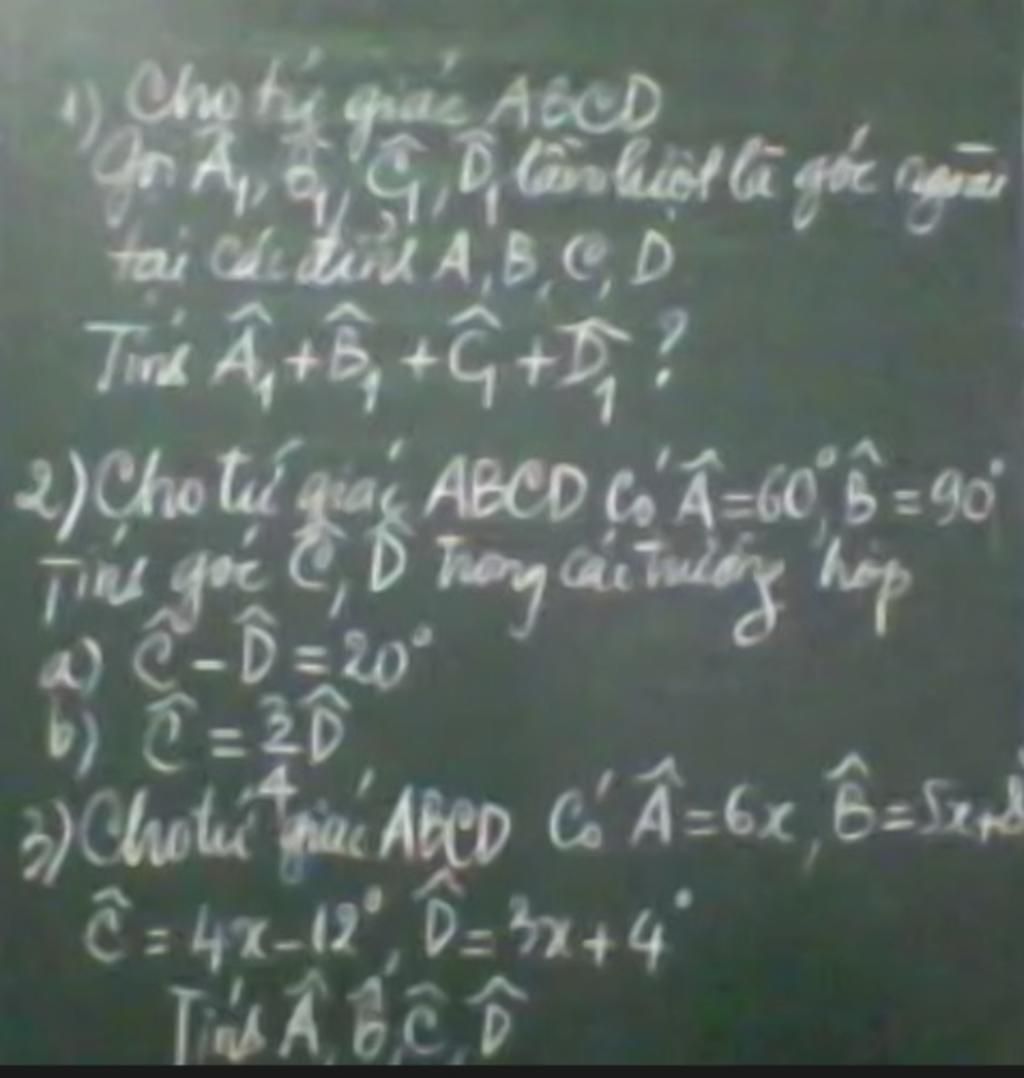 1) Cho tứ giác ABCD
Gọi Â₁, B̂₁, Ĉ₁, D̂₁ lần lượt là góc ngoài
tại các đỉnh A, B, C, D
Tính Â₁ + B̂₁ + Ĉ₁ + D̂₁ ?
2) Cho tứ giác ABCD Có Â = 60°, B̂ = 90°
Tính góc Ĉ, D̂ trong các trường hợp
a) Ĉ - D̂ = 20°
b) Ĉ = 3/4 D̂
3) Cho tứ giác ABCD Có Â = 6x, B̂ = 5x+8
Ĉ = 4x - 12°, D̂ = 3x + 4°
Tính Â, B̂, Ĉ, D̂